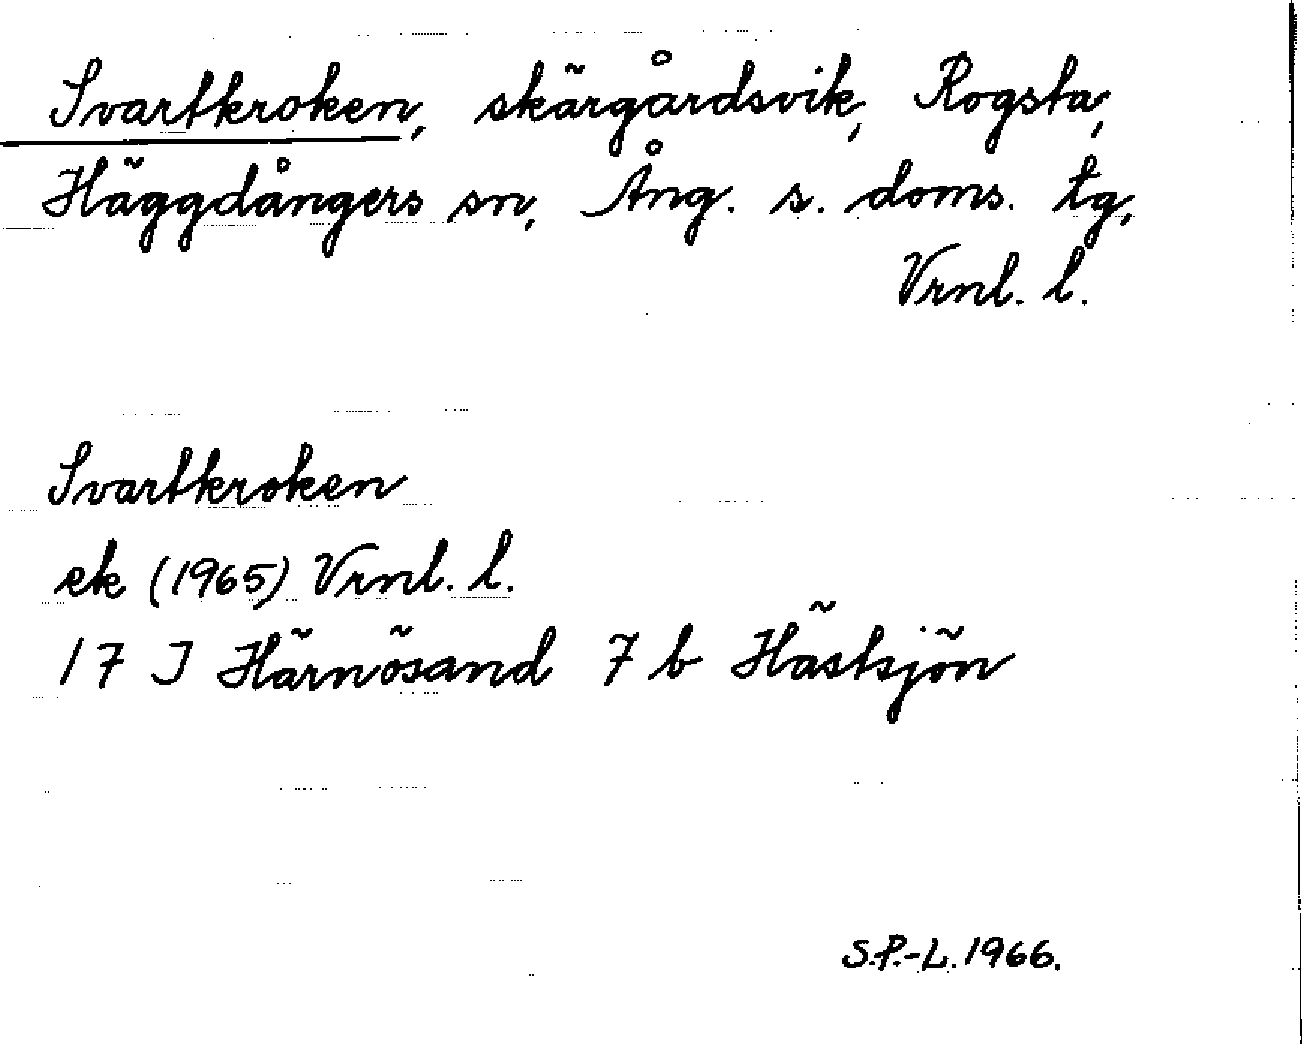 Svartkroken, skärgårdsvik, Rogsta,
Häggdångers sn, Ång. s. doms. tg,
Vrnl. l.
Svartkroken
ek (1965) Vrnl. l.
17 J Härnösand 7 b Hästsjön
S.P.-L. 1966.